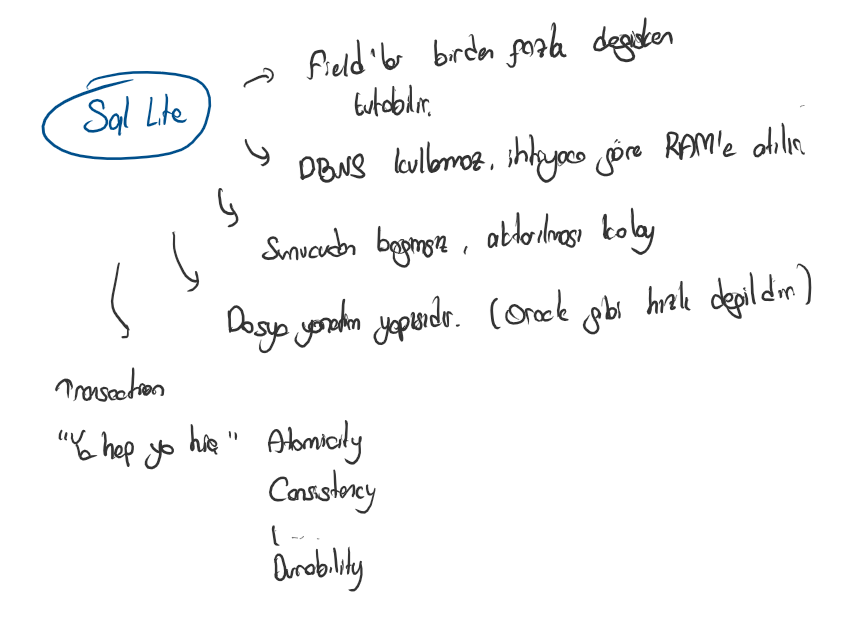 Sql Lite
Field'lar birden fazla degisken
tutabilir.
DBMS kullanmaz, ihtiyaca göre RAM'e atılır
Sunucudan bagımsız, aktarılması kolay
Dosya yonetim yapısıdır. (Oracle gibi hızlı degildir)
Transaction
"Ya hep ya hiç" Atomicity
Consistency
I ....
Durability